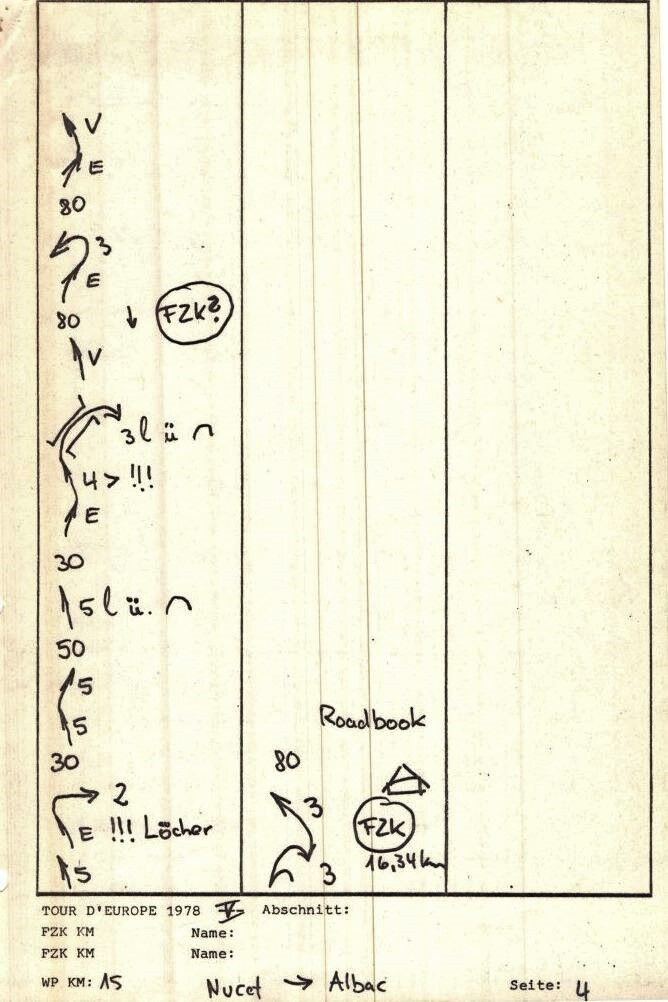 V
E
80
3
E
80 ↓ FZK?
V
3 l ü ∩
4 > !!!
E
30
5 l ü. ∩
50
5
5
30
2
E !!! Löcher
5
Roadbook
80
3
FZK
16,34 km
3
TOUR D'EUROPE 1978 V Abschnitt:
FZK KM Name:
FZK KM Name:
WP KM: 15 Nucet → Albac Seite: 4